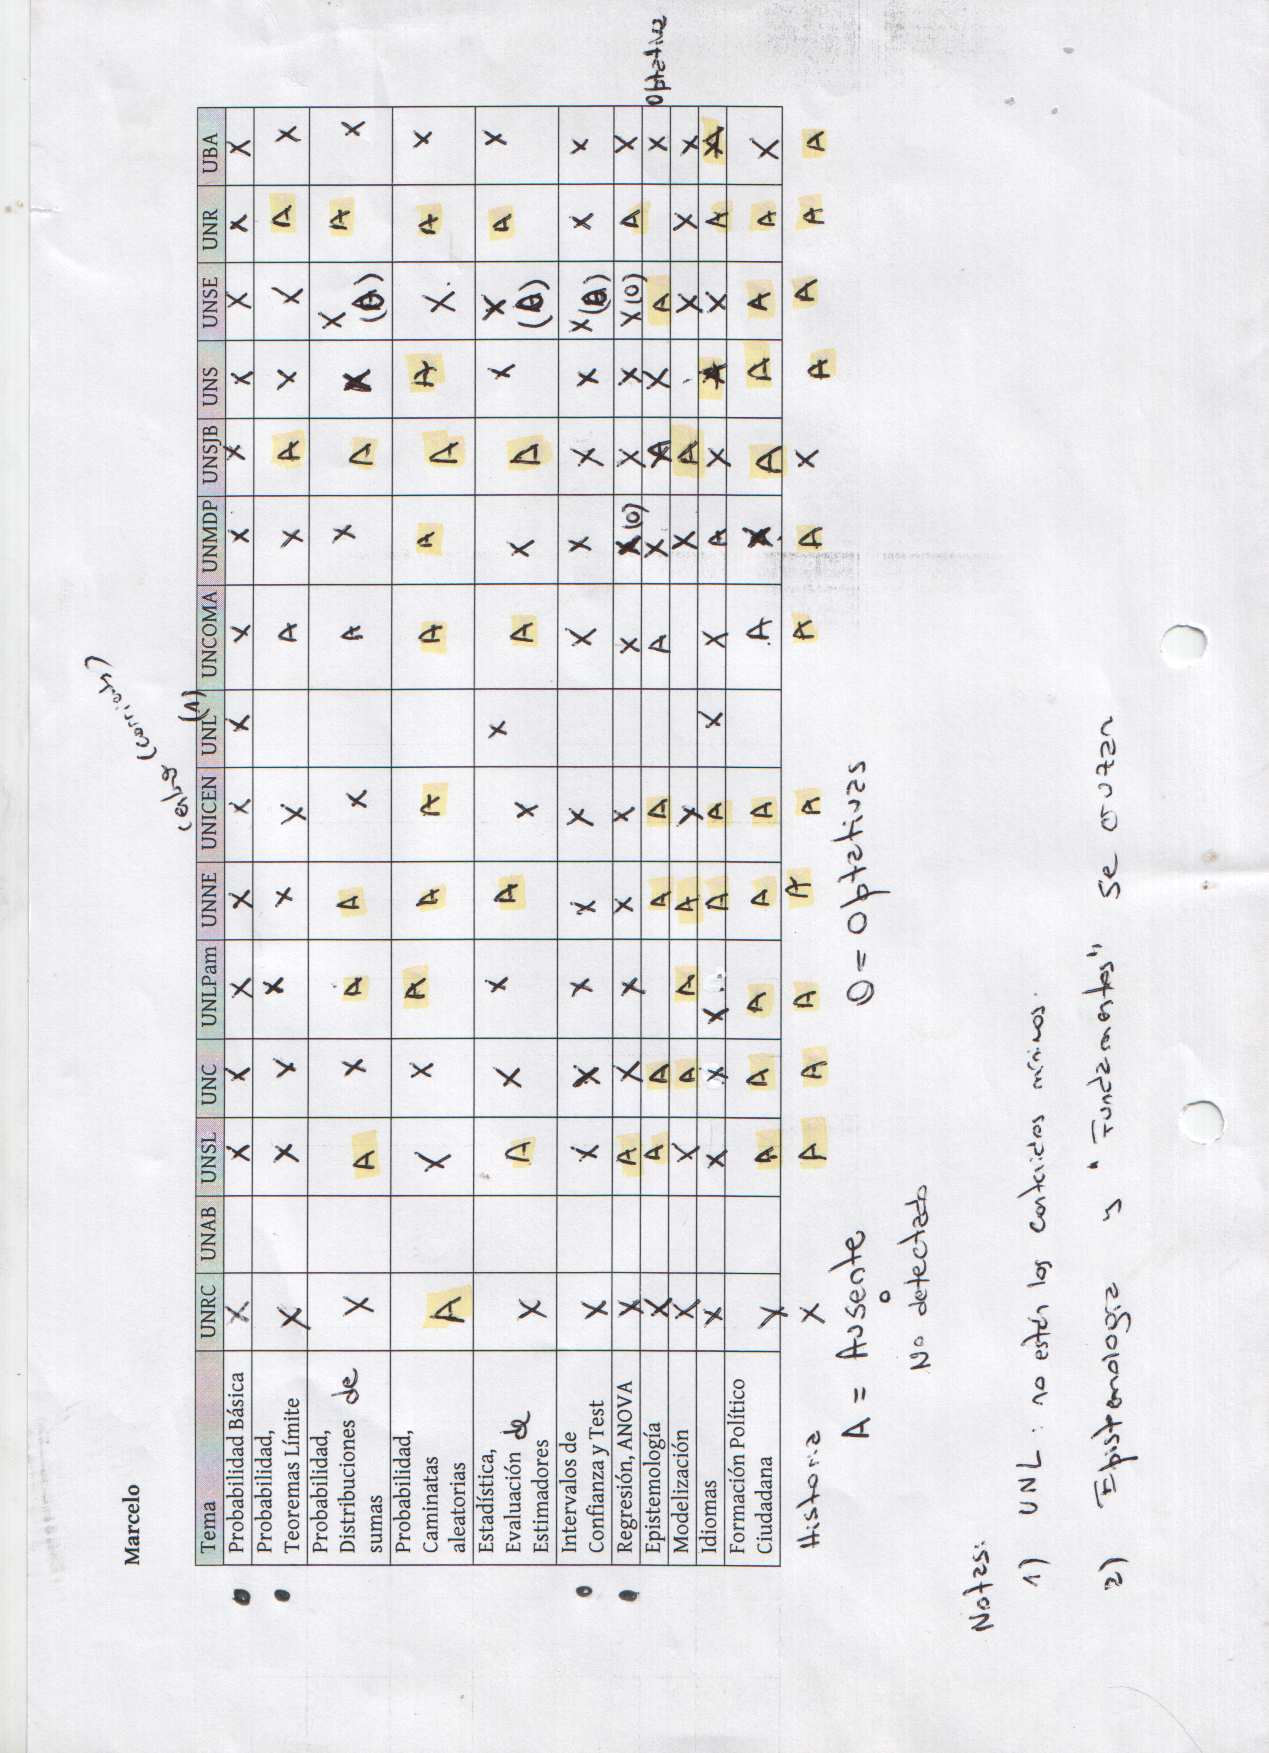 Marcelo
(en los (corriendo)
(1)
Optativo
Tema UNRC UNAB UNSL UNC UNLPam UNNE UNICEN UNL UNCOMA UNMDP UNSJB UNS UNSE UNR UBA
Probabilidad Básica X X X X X X X X X X X X X X
Probabilidad,
Teoremas Límite X X X X X X A X A X X A X
Probabilidad,
Distribuciones de
sumas X A X A A X A X A X X (A) A X
Probabilidad,
Caminatas
aleatorias A X X A A A A A A A X A X
Estadística,
Evaluación de
Estimadores X A X X A X X A X A X X (A) A X
Intervalos de
Confianza y Test X X X X X X X X X X X (A) X X
Regresión, ANOVA X A X X X X X X (O) X X X (O) A X
Epistemología X A A A A A X A X A X
Modelización X X A A A X X A X X X
Idiomas X X X X A A X X A X A X A A
Formación Político
Ciudadana X A A A A A A X A A A A X
Historia X A A A A A A A X A A A A
A = Ausente
o
No detectado
O = Optativas
Notas:
1) UNL : no están los contenidos mínimos.
2) Epistemología y "Fundamentos" se cruzan